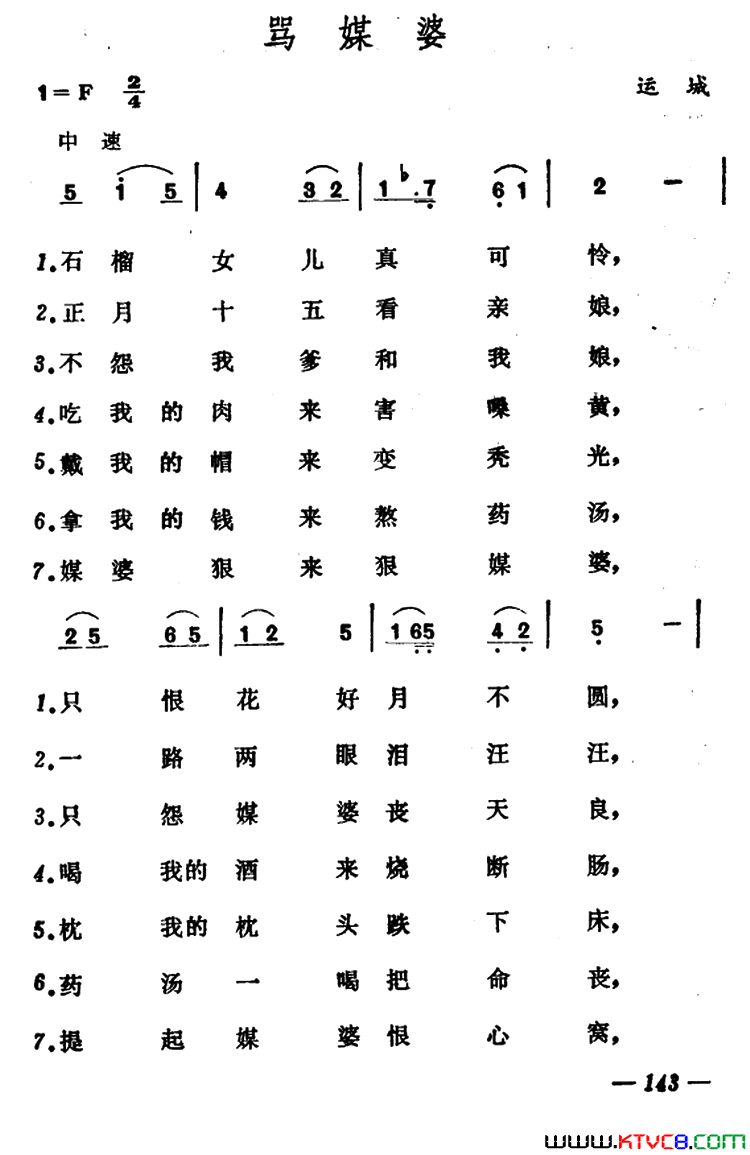 骂媒婆
1=F 2/4 运城
中速
5 i 5 | 4 3 2 | 1 ♭.7 6 1 | 2 － |
1.石榴女儿真可怜，
2.正月十五看亲娘，
3.不怨我爹和我娘，
4.吃我的肉来害嗓黄，
5.戴我的帽来变秃光，
6.拿我的钱来熬药汤，
7.媒婆狠来狠媒婆，
2 5 6 5 | 1 2 5 | 1 6 5 4 2 | 5 － |
1.只恨花好月不圆，
2.一路两眼泪汪汪，
3.只怨媒婆丧天良，
4.喝我的酒来烧断肠，
5.枕我的枕头跌下床，
6.药汤一喝把命丧，
7.提起媒婆恨心窝，
—143—
www.KTVC8.com